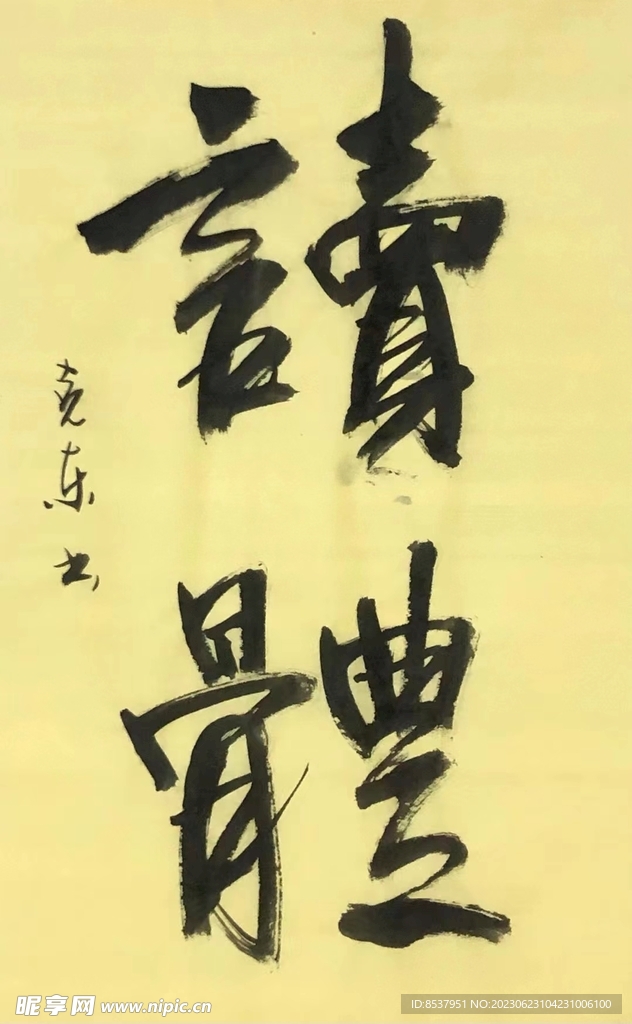 讀體
克东书
昵享网 www.nipic.cn
ID:8537951 NO:20230623104231006100